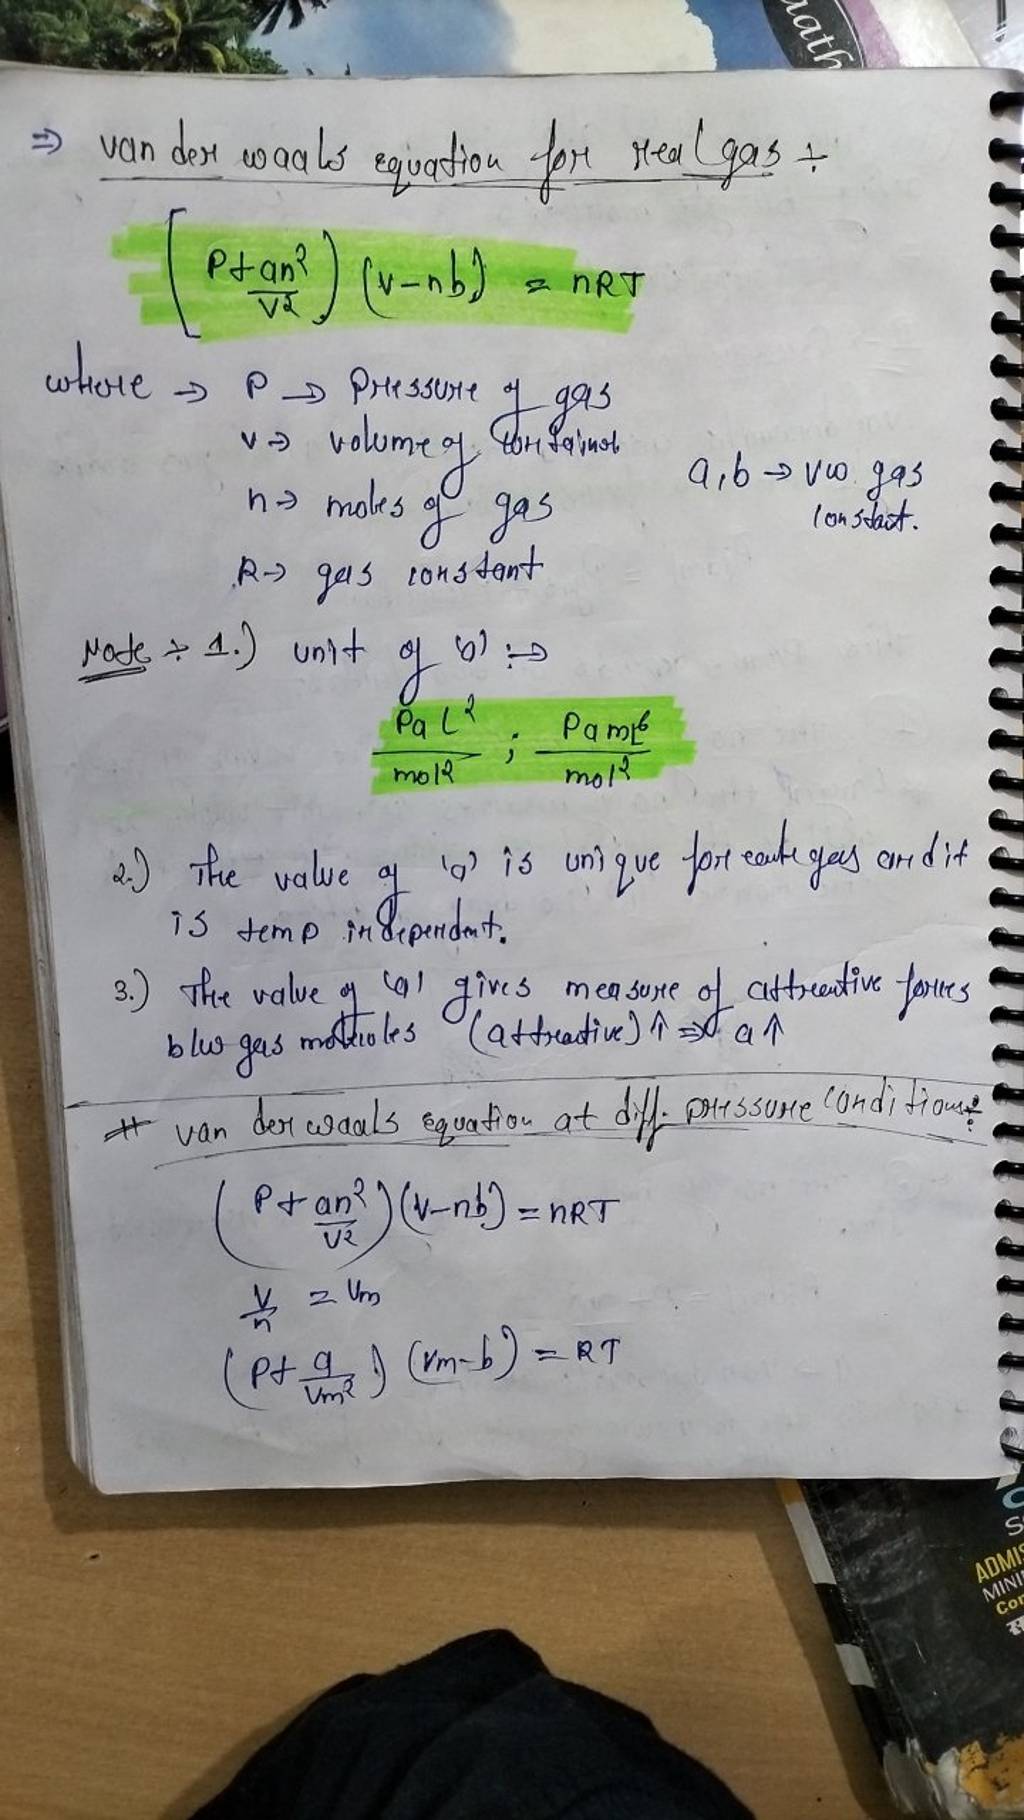 aath
⇒ van der waals equation for real gas ÷
[P + an²/V²) (v-nb) = nRT
where → P → Pressure of gas
v → volume of container
a, b → vw. gas
constant.
n → moles of gas
R → gas constant
Note ÷ 1.) unit of 'a' :→
Pa L²/mol² ; Pa m6/mol²
2.) The value of 'a' is unique for each gas and it
is temp independent.
3.) The value of 'a' gives measure of attractive forces
b/w gas molecules (attractive) ↑ ⇒ a ↑
# van der waals equation at diff. pressure conditions:
(P + an²/V²) (v-nb) = nRT
V/n = Vm
(P + a/Vm²) (Vm-b) = RT
ADMIS
MINI
Con